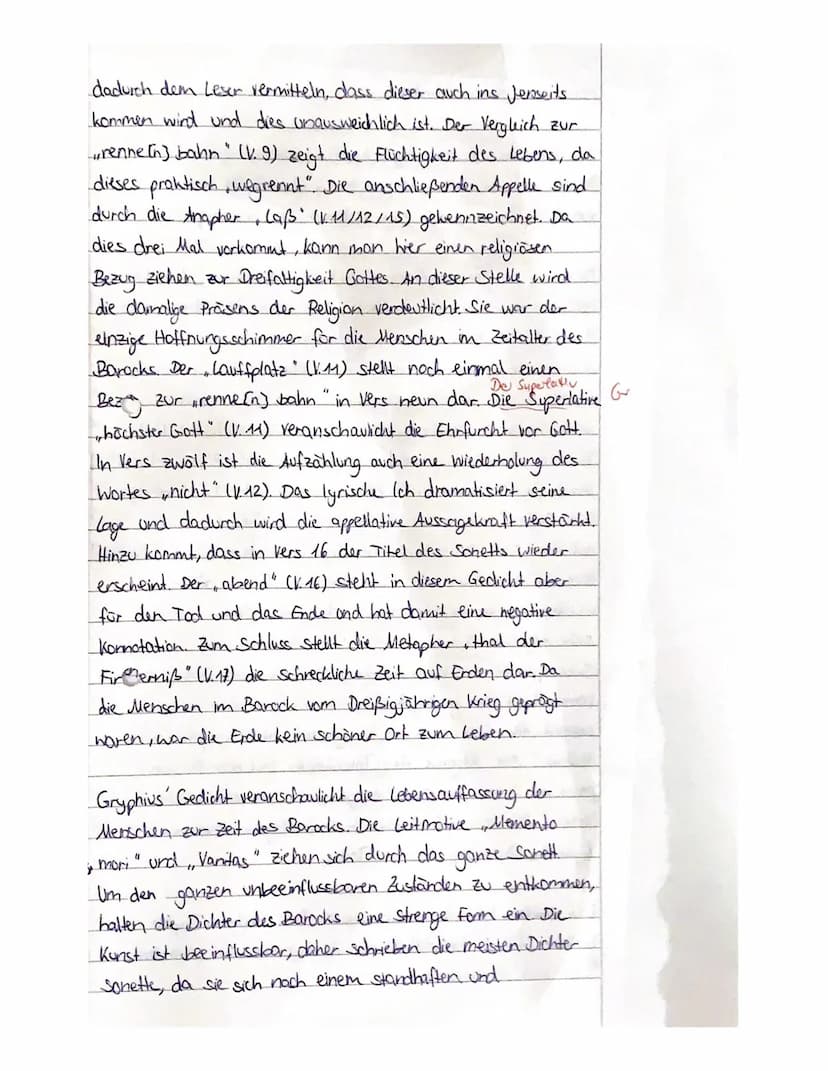 dadurch dem Leser vermitteln, dass dieser auch ins Jenseits
kommen wird und dies unausweichlich ist. Der Vergleich zur
„renne[n] bahn" (V. 9) zeigt die Flüchtigkeit des Lebens, da
dieses praktisch „wegrennt". Die anschließenden Appelle sind
durch die Anapher „Laß" (V. 11/12/15) gekennzeichnet. Da
dies drei Mal vorkommt, kann man hier einen religiösen
Bezug ziehen zur Dreifaltigkeit Gottes. An dieser Stelle wird
die damalige Präsens der Religion verdeutlicht. Sie war der
einzige Hoffnungsschimmer für die Menschen im Zeitalter des
Barocks. Der „Lauffplatz" (V. 11) stellt noch einmal einen
Der Superlativ
Bezug zur „renne[n] bahn" in Vers neun dar. Die Superlative G
„höchster Gott" (V. 11) veranschaulicht die Ehrfurcht vor Gott.
In Vers zwölf ist die Aufzählung auch eine Wiederholung des
Wortes „nicht" (V. 12). Das lyrische Ich dramatisiert seine
Lage und dadurch wird die appellative Aussagekraft verstärkt.
Hinzu kommt, dass in Vers 16 der Titel des Sonetts wieder
erscheint. Der „abend" (V. 16) steht in diesem Gedicht aber
für den Tod und das Ende und hat damit eine negative
Konnotation. Zum Schluss stellt die Metapher „thal der
Finsterniß" (V. 17) die schreckliche Zeit auf Erden dar. Da
die Menschen im Barock vom Dreißigjährigen Krieg geprägt
waren, war die Erde kein schöner Ort zum Leben.
Gryphius' Gedicht veranschaulicht die Lebensauffassung der
Menschen zur Zeit des Barocks. Die Leitmotive „Memento
mori" und „Vanitas" ziehen sich durch das ganze Sonett.
Um den ganzen unbeeinflussbaren Zuständen zu entkommen,
halten die Dichter des Barocks eine strenge Form ein. Die
Kunst ist beeinflussbar, daher schrieben die meisten Dichter
Sonette, da sie sich nach einem standhaften und